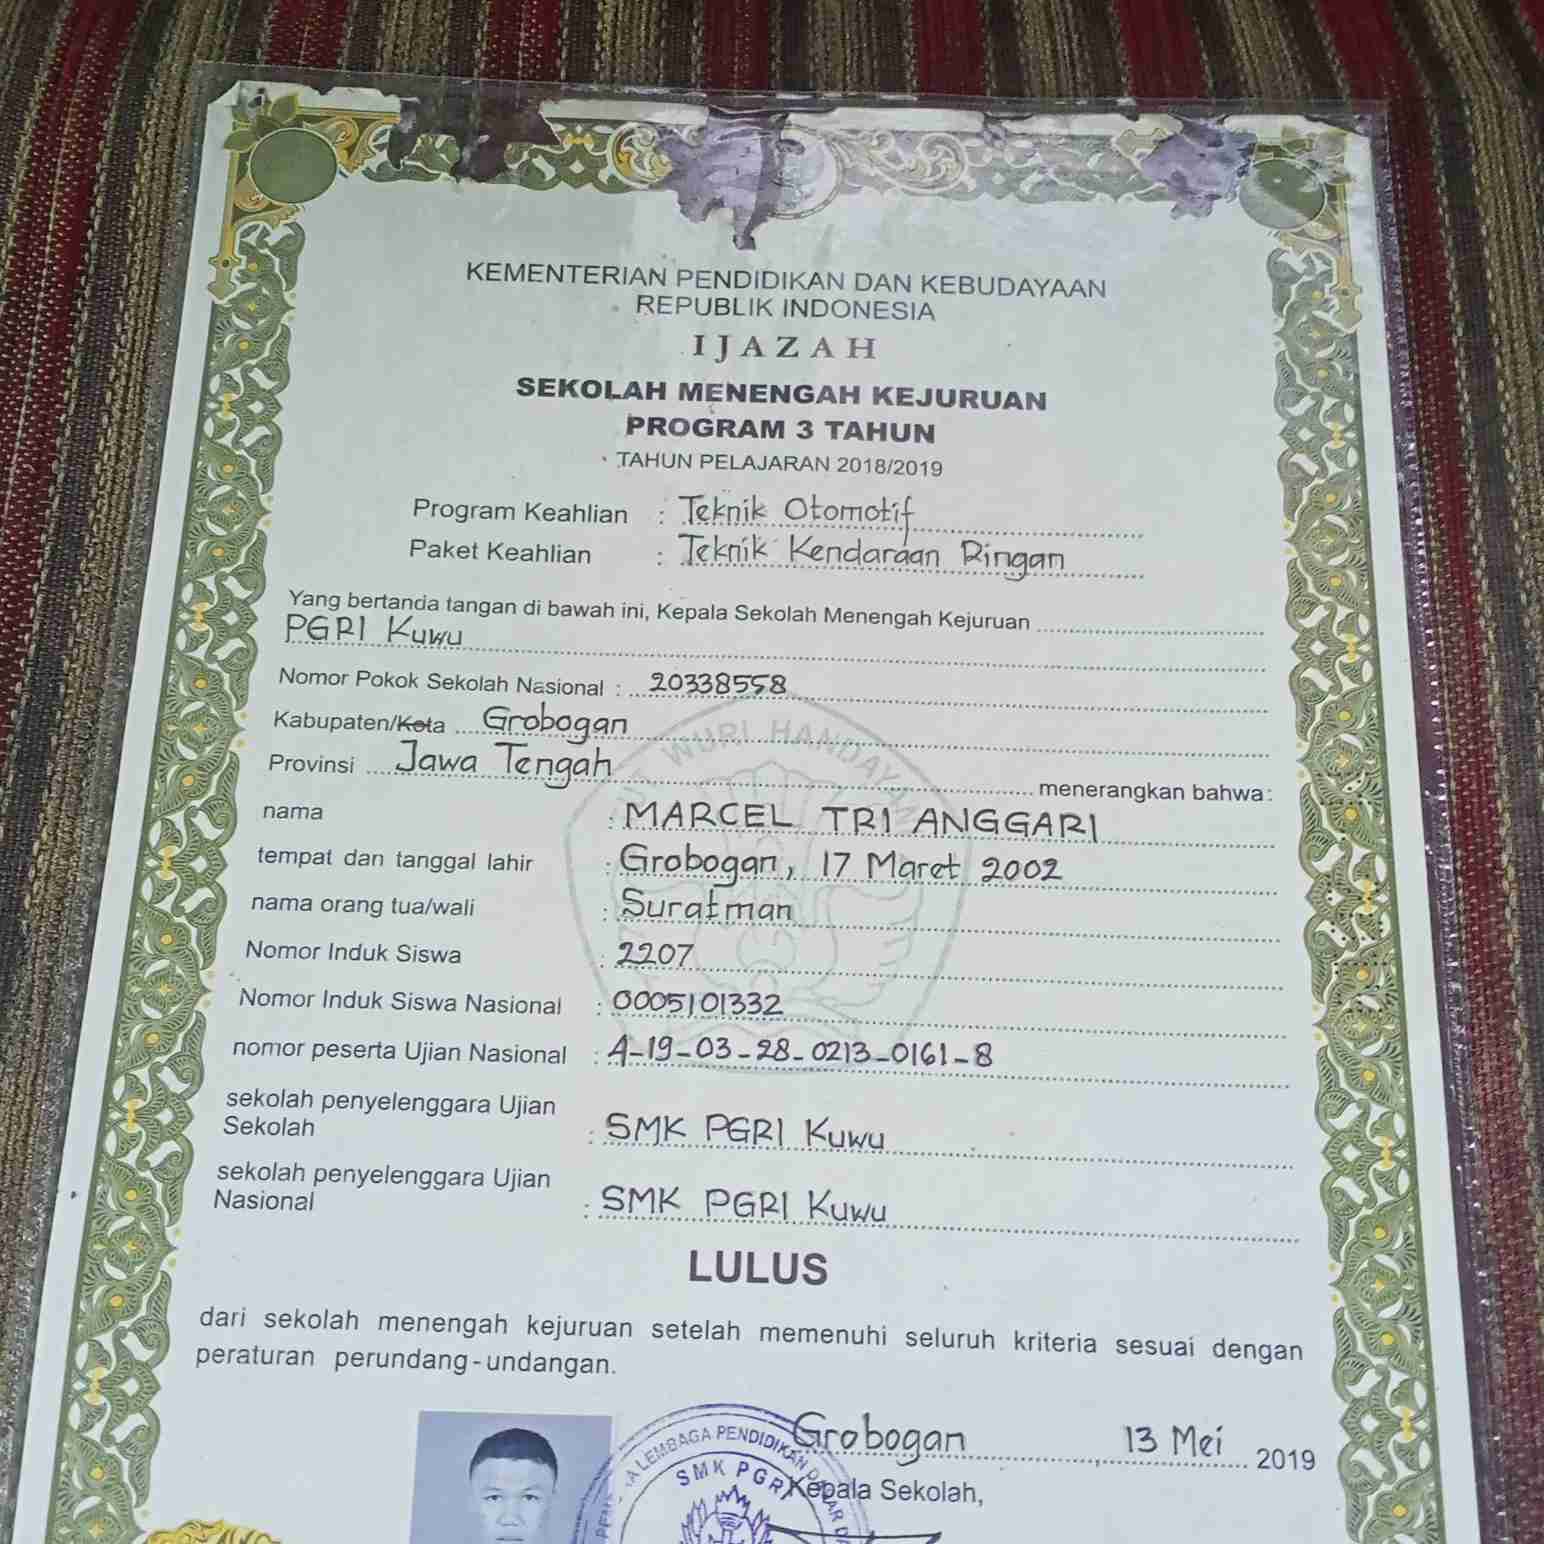 KEMENTERIAN PENDIDIKAN DAN KEBUDAYAAN
REPUBLIK INDONESIA
IJAZAH
SEKOLAH MENENGAH KEJURUAN
PROGRAM 3 TAHUN
TAHUN PELAJARAN 2018/2019
Program Keahlian : Teknik Otomotif
Paket Keahlian : Teknik Kendaraan Ringan
Yang bertanda tangan di bawah ini, Kepala Sekolah Menengah Kejuruan
PGRI Kuwu
Nomor Pokok Sekolah Nasional : 20338558
Kabupaten/Kota Grobogan
Provinsi Jawa Tengah menerangkan bahwa:
nama : MARCEL TRI ANGGARI
tempat dan tanggal lahir : Grobogan, 17 Maret 2002
nama orang tua/wali : Suratman
Nomor Induk Siswa : 2207
Nomor Induk Siswa Nasional : 0005101332
nomor peserta Ujian Nasional : 4-19-03-28-0213-0161-8
sekolah penyelenggara Ujian
Sekolah : SMK PGRI Kuwu
sekolah penyelenggara Ujian
Nasional : SMK PGRI Kuwu
LULUS
dari sekolah menengah kejuruan setelah memenuhi seluruh kriteria sesuai dengan
peraturan perundang-undangan.
Grobogan, 13 Mei 2019
Kepala Sekolah,
LEMBAGA PENDIDIKAN
SMK PGRI
WURI HANDAYANI